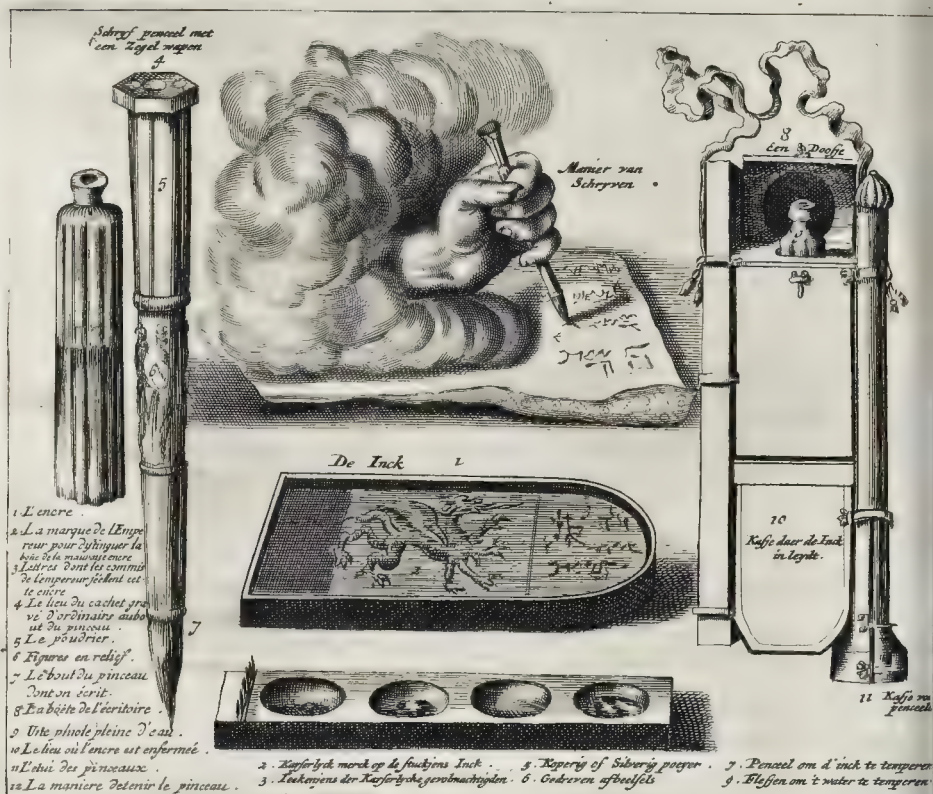 Schryf penceel met
een Zegel wapen
4
5
7
Manier van
Schryven
8
Een Doosje
De Inck 1
10
Kasje daer de Inck
in leydt.
11 Kasje
penceel
1 L'encre
2 La marque de l'Empe
reur pour distinguer la
bone de la mauvaise encre
3 Lettres dont les commis
de l'empereur séellent cet-
te encre
4 Le lieu du cachet gra
vé d'ordinaire au bo
ut du pinceau.
5 Le poudrier.
6 Figures en relief.
7 Le bout du pinceau
dont on écrit.
8 La boëte de l'écritoire.
9 Une phiole pleine d'eau.
10 Le lieu où l'encre est enfermée.
11 L'etui des pinceaux.
12 La maniere detenir le pinceau.
2. Kayserlyck merck op de stuckjens Inck.
3. Teekenjens der Kayserlycke gevolmachtigden.
5. Koperig of Silverig poeyer.
6. Gedreven afbeelsels
7. Penceel om d'inck te temperen
9. Flessen om 't water te temperen